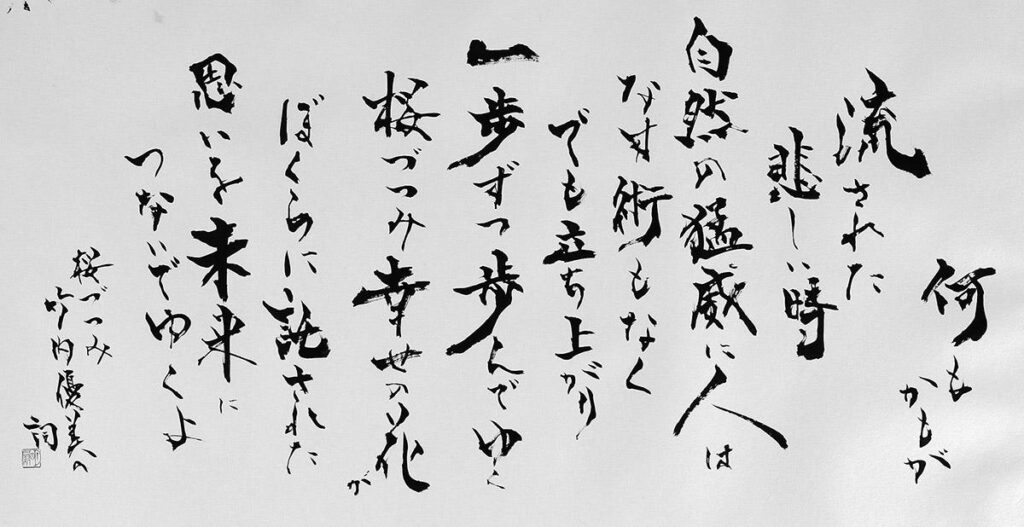 何も
かもが
流された
悲しい時
自然の猛威に人は
なす術もなく
でも立ち上がり
一歩ずつ歩んでゆく
桜づつみ幸せの花が
ぼくらに託された
思いを未来に
つないでゆくよ
桜づつみ
竹内優美の
詞